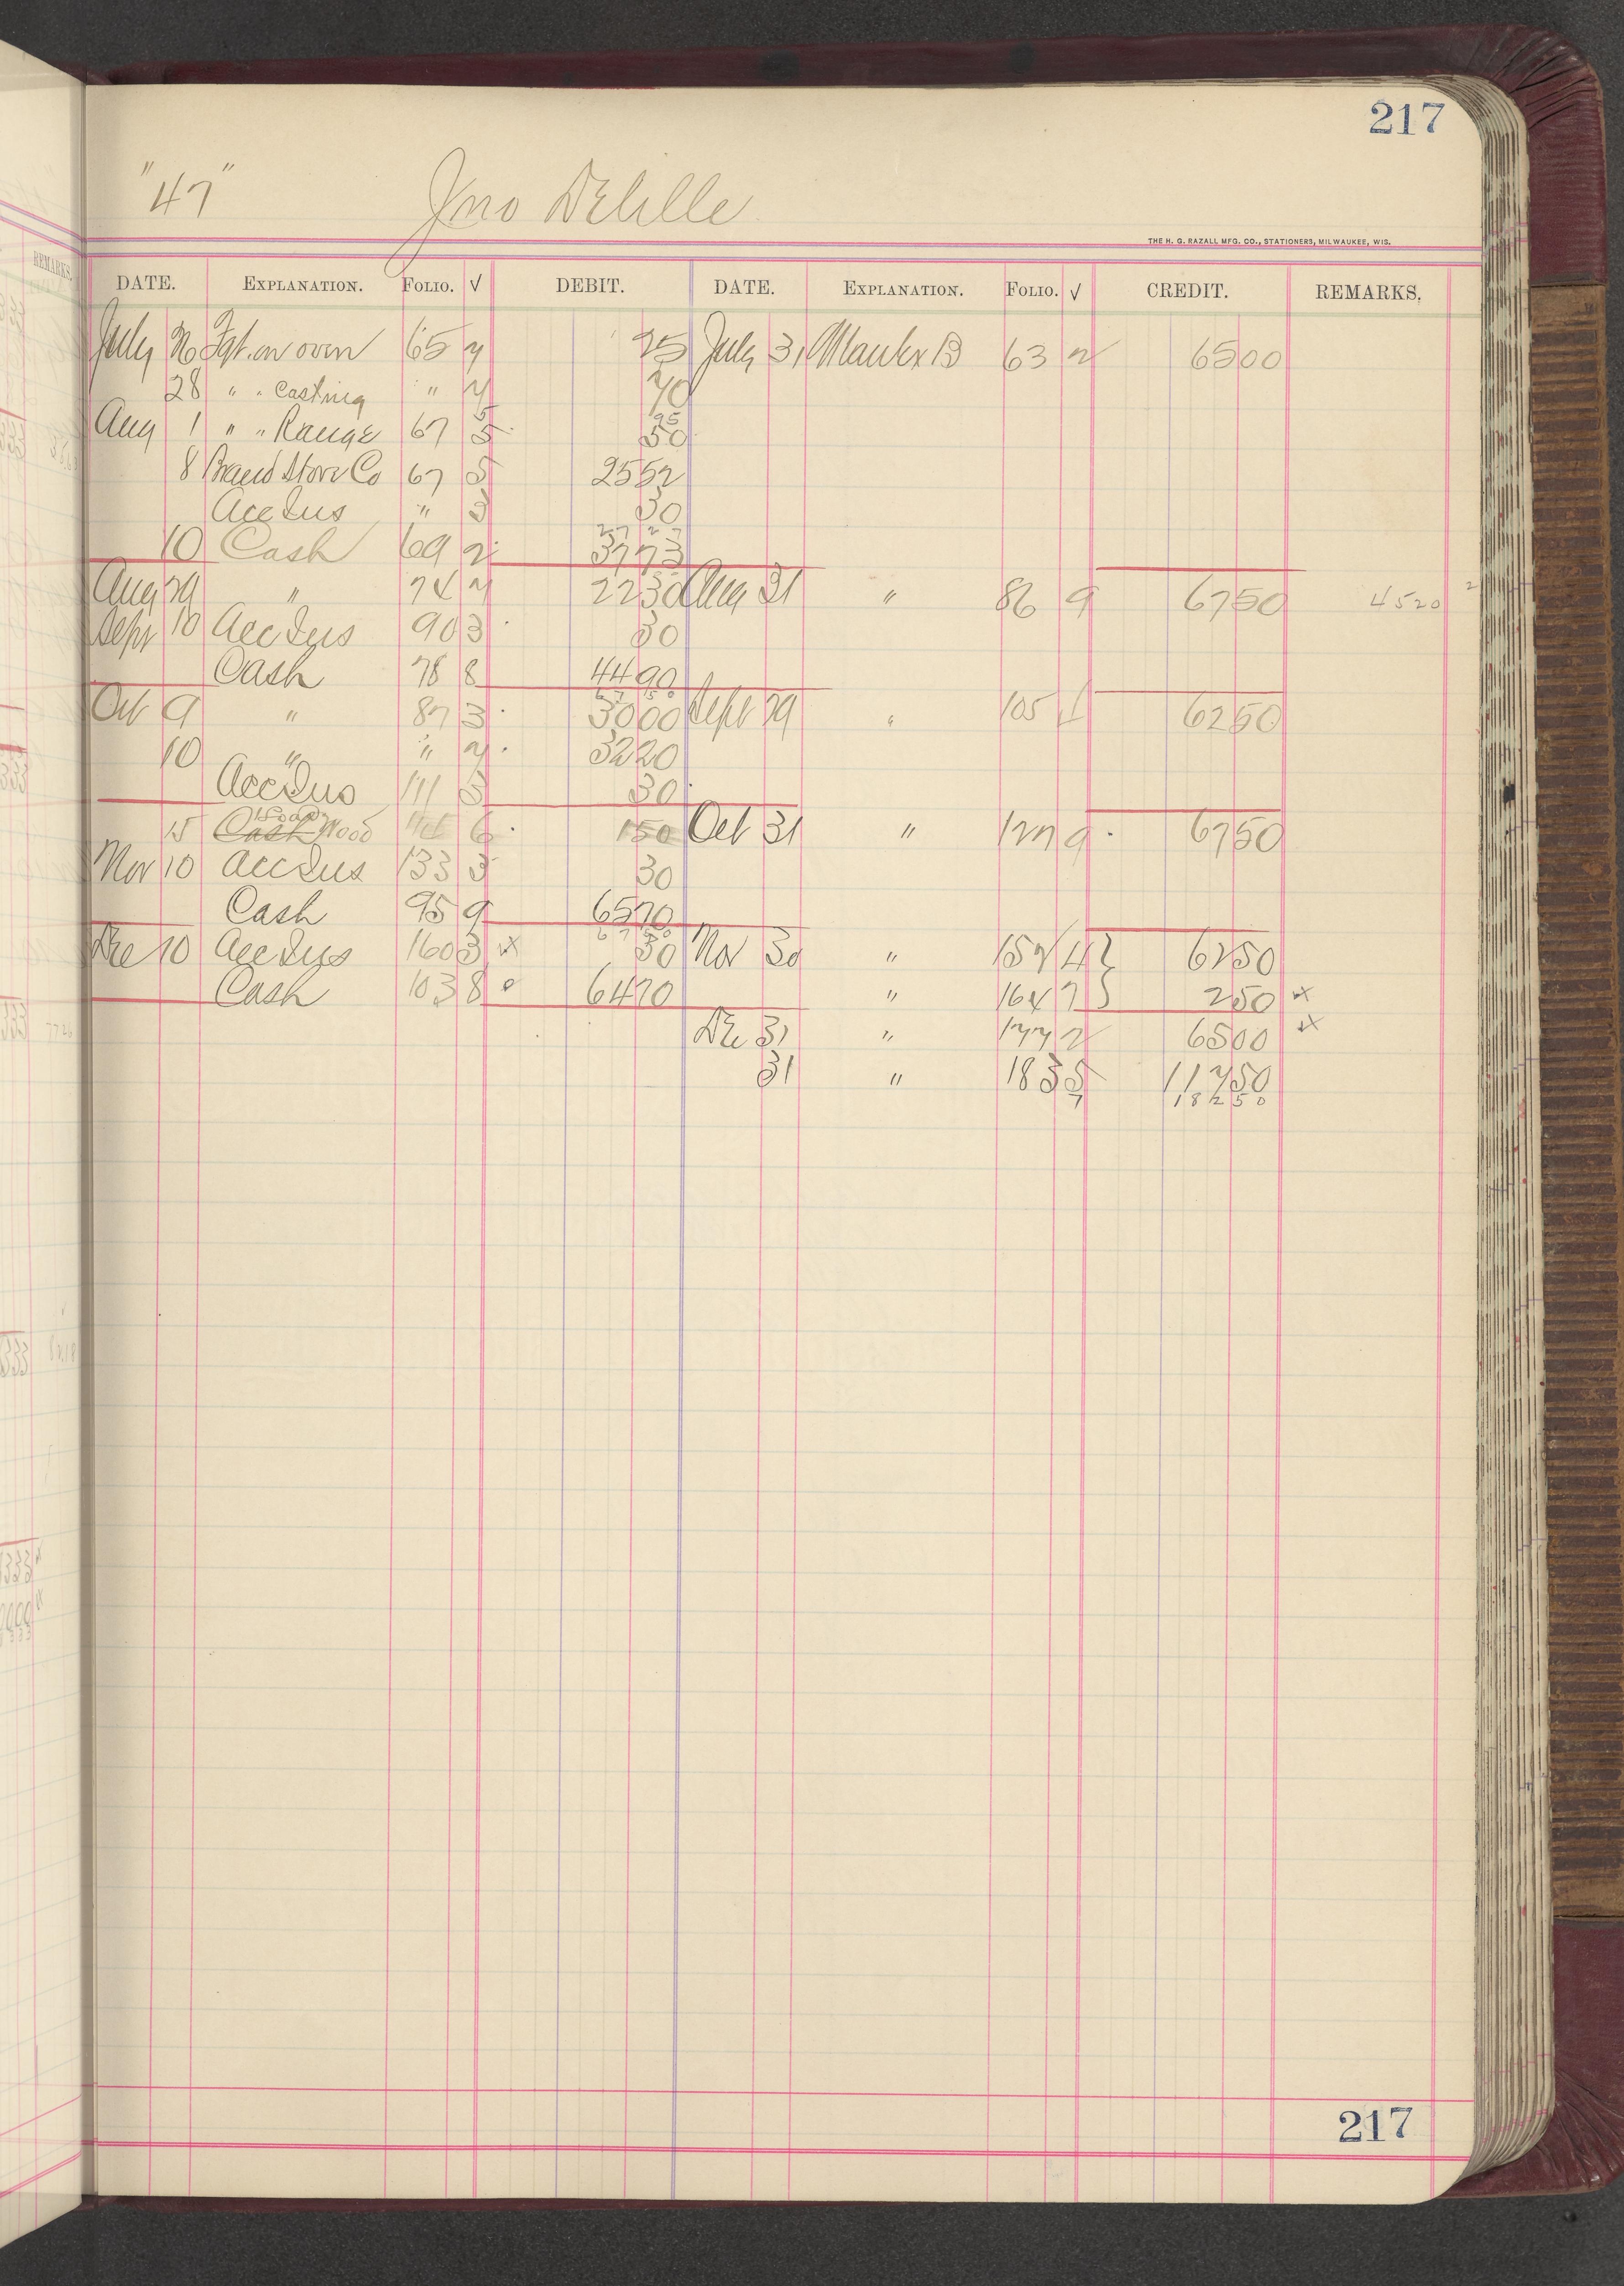 217
"47" Jno DeLille
THE H. G. RAZALL MFG. CO., STATIONERS, MILWAUKEE, WIS.
DATE. EXPLANATION. FOLIO. √ DEBIT. DATE. EXPLANATION. FOLIO. √ CREDIT. REMARKS.
July 26 Fgt. on oven 65 2 25 July 31 63 2 6500
28 " " Casting " 2 70
Aug 1 " " Range 67 5 50
8 Brand Stove Co 67 5 2552
Acc Ins " 3 30
10 Cash 69 2 3773
Aug 29 " 74 2 2230 Aug 31 " 86 9 6750 4520
Sept 10 Acc Ins 90 3 30
Cash 78 8 4490
Oct 9 " 87 3 3000 Sept 29 " 105 1 6250
10 " " 2 3220
Acc Ins 111 3 30
15 Wood 6 150 Oct 31 " 127 9 6750
Nov 10 Acc Ins 133 3 30
Cash 95 9 6570
Dec 10 Acc Ins 160 3 x 30 Nov 30 " 152 4 } 6250
Cash 103 8 6470 " 164 7 } 250 x
Dec 31 " 177 2 6500 x
31 " 183 5 11750
7 18250
217